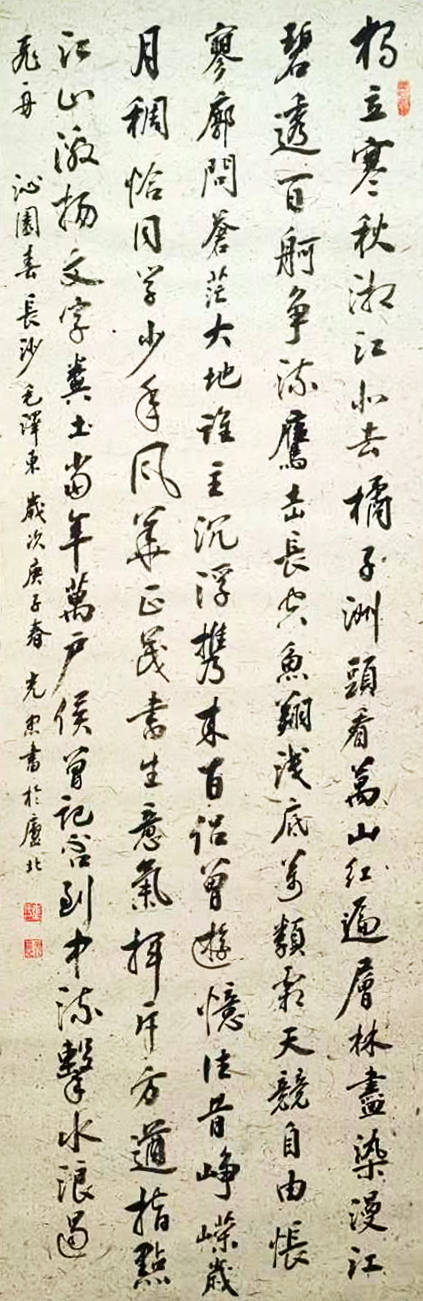 独立寒秋湘江北去橘子洲頭看萬山红遍層林盡染漫江
碧透百舸争流鷹击長空魚翔浅底萬類霜天競自由悵
寥廓問蒼茫大地谁主沉浮携来百侣曾遊憶往昔峥嵘歲
月稠恰同学少年风華正茂书生意氣挥斥方遒指點
江山激扬文字粪土当年萬户侯曾记否到中流擊水浪遏
飛舟 沁園春長沙毛澤東歲次庚子春光忠書於廬北